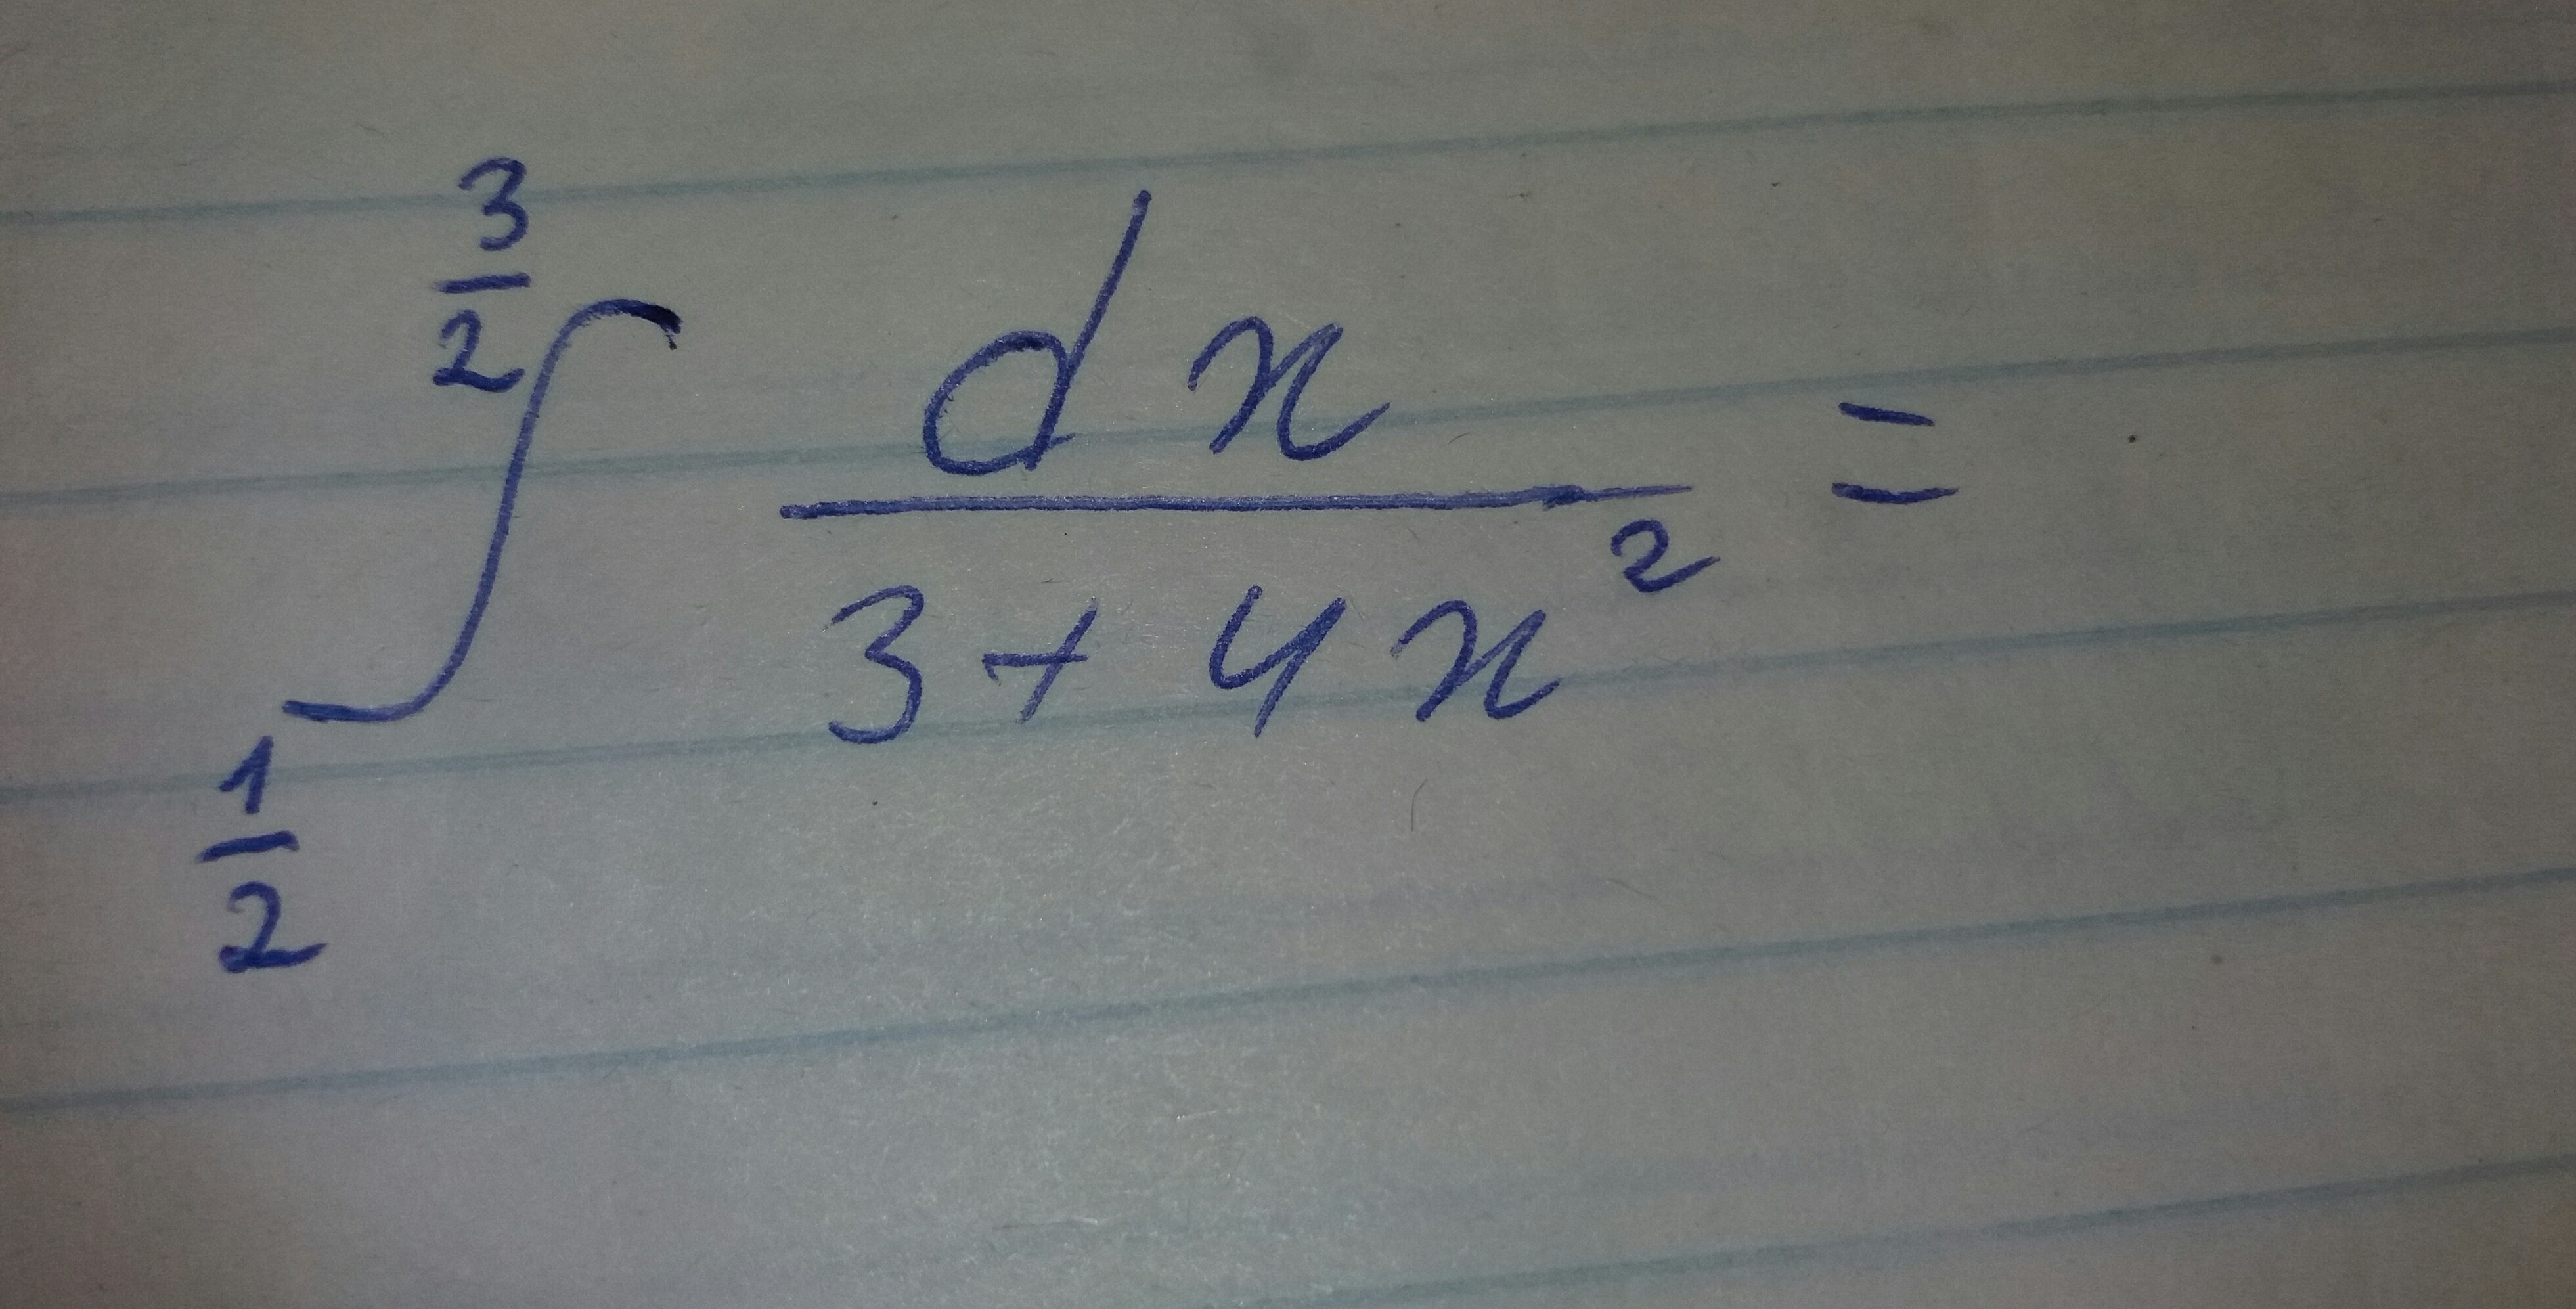 ∫_{1/2}^{3/2} dx / (3 + 4x²) =